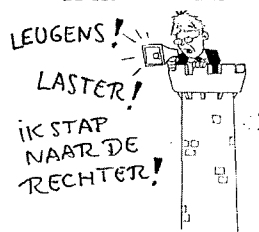 LEUGENS!
LASTER!
iK STAP
NAAR DE
RECHTER!